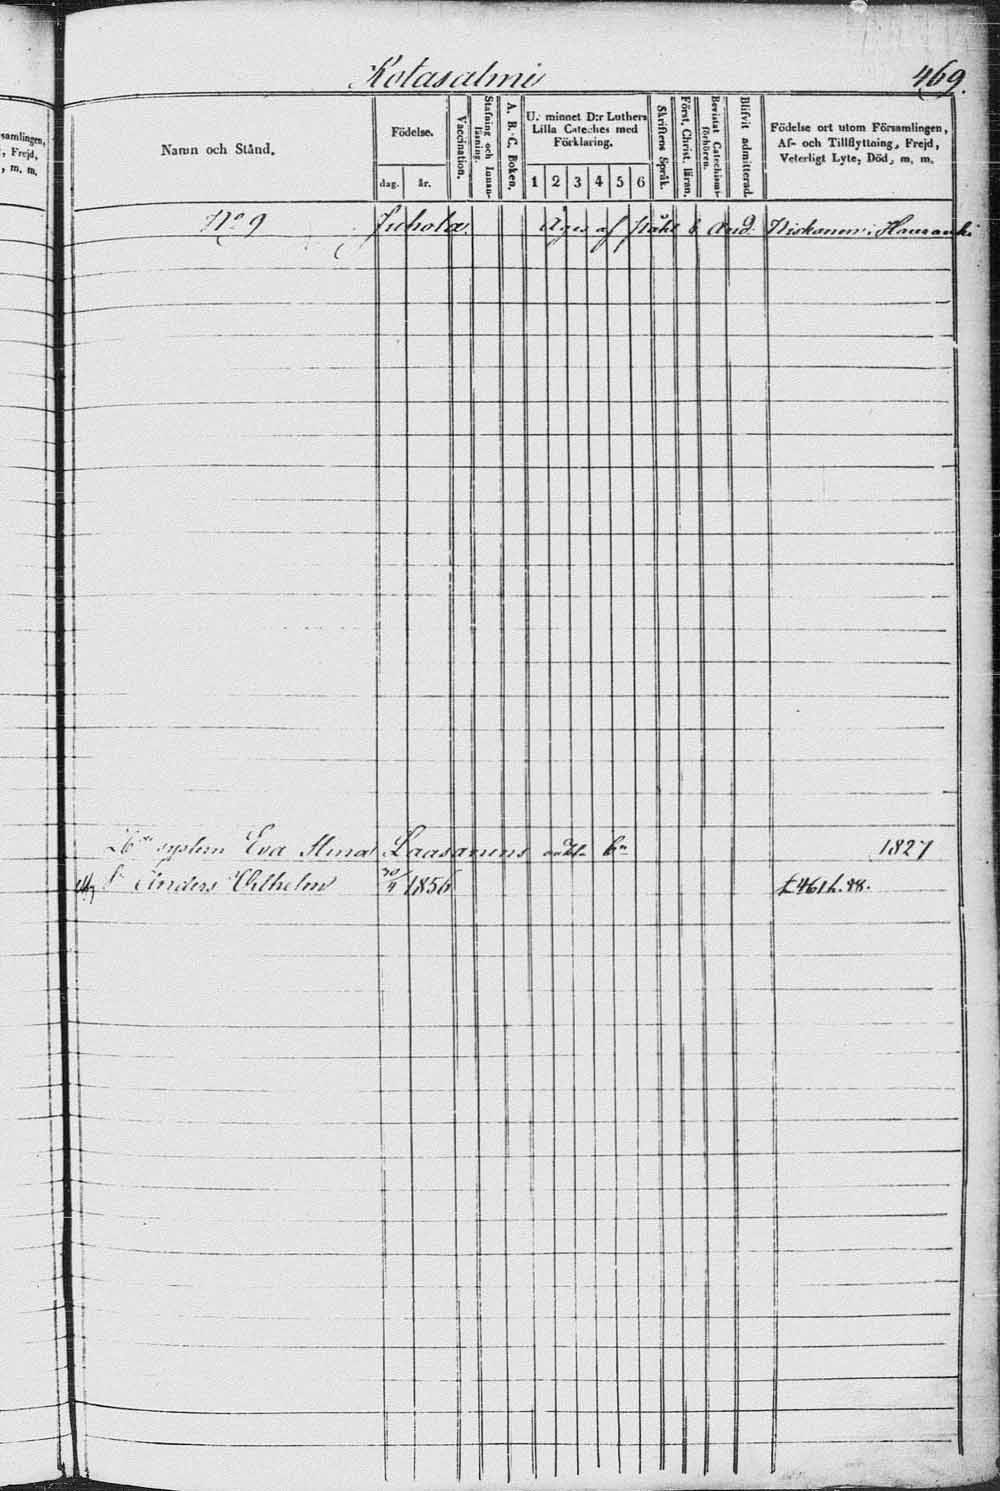 Kotasalmi
469.
samlingen,
, Frejd,
, m. m.
Namn och Stånd.
Födelse.
dag. år.
Vaccination.
Stafning och Innan-
läsning.
A. B. C. Boken.
U. minnet D:r Luthers
Lilla Cateches med
Förklaring.
1 2 3 4 5 6
Skriftens Språk.
Först. Christ. läran.
Bevistat Catechismi-
förhören.
Blifvit admitterad.
Födelse ort utom Församlingen,
Af- och Tillflyttning, Frejd,
Veterligt Lyte, Död, m. m.
No 9 Juhola. Äges af And. Niskanen i Hausanki
Eva Stina Laasanens 1827
Anders Vilhelm 1856